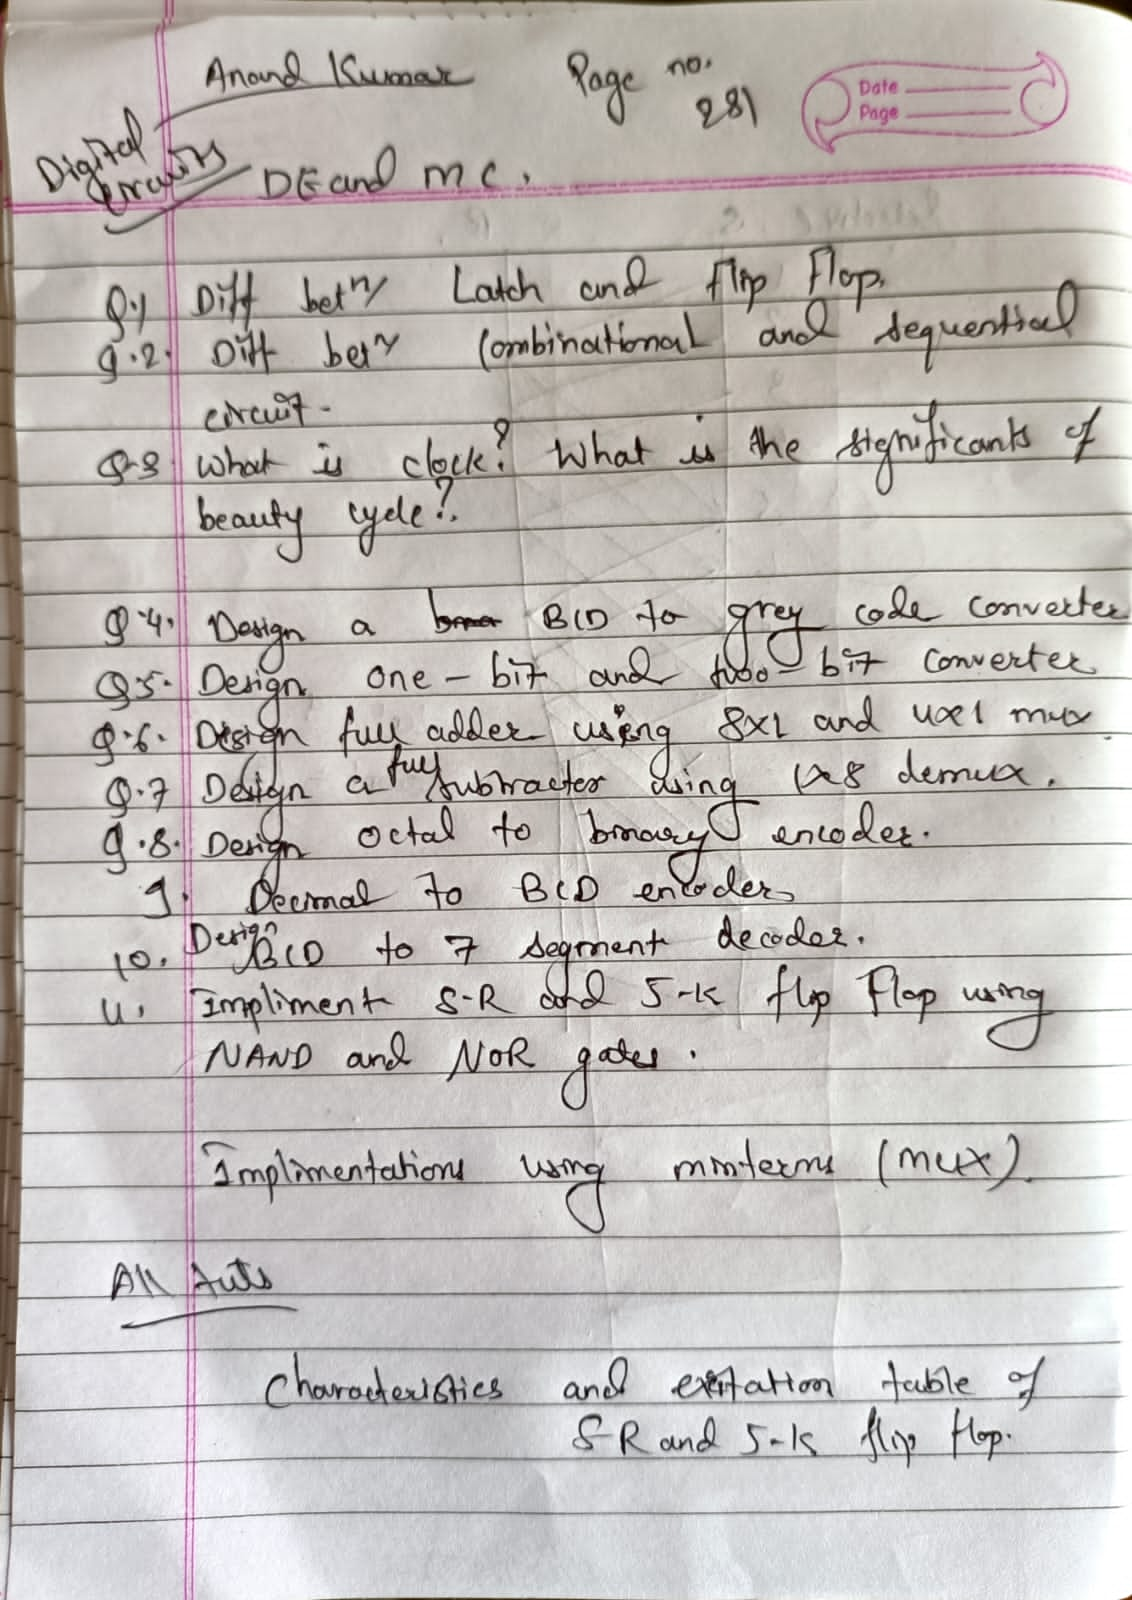 Anand Kumar Page no.
281
Date
Page
Digital
circuits
DE and MC.
Q.1 Diff betn Latch and flip flop.
Q.2. Diff betn Combinational and sequential
circuit.
Q.3 What is clock? What is the significants of
beauty cycle?
Q.4. Design a BCD to grey code converter
Q.5. Design one-bit and two-bit converter
Q.6. Design full adder using 8x1 and 4x1 mux
Q.7 Design a full subtracter using 1x8 demux.
Q.8. Design octal to binary encoder.
9. Decimal to BCD encoder
10. Design BCD to 7 segment decoder.
11. Impliment S-R and J-K flip flop using
NAND and NOR gates.
Implimentations using minterms (mux).
All
Characteristics and exitation table of
S-R and J-K flip flop.